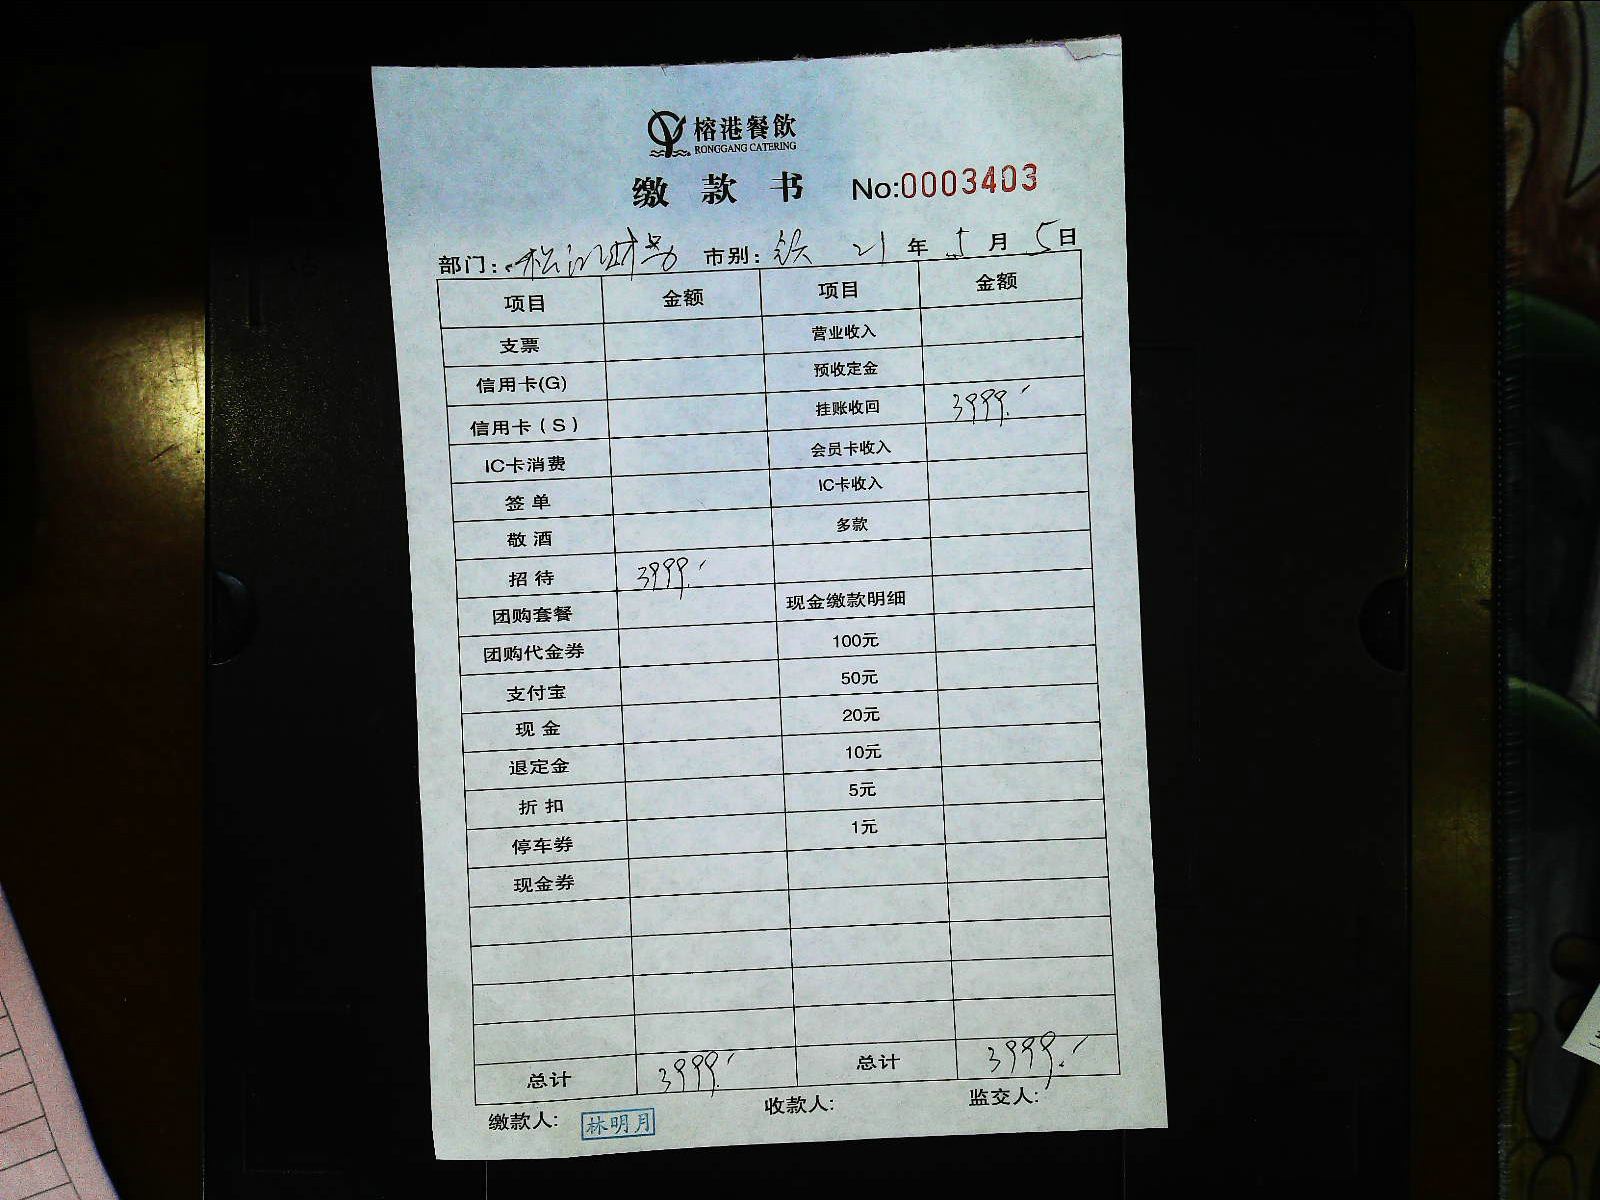 榕港餐飲
RONGGANG CATERING
缴 款 书 No:0003403
部门: 市别: 21 年 5 月 5 日
项目 金额 项目 金额
支票 营业收入
信用卡(G) 预收定金
信用卡(S) 挂账收回 3999.-
IC卡消费 会员卡收入
签单 IC卡收入
敬酒 多款
招待 3999.-
团购套餐 现金缴款明细
团购代金券 100元
支付宝 50元
现金 20元
退定金 10元
折扣 5元
停车券 1元
现金券
总计 3999.- 总计 3999.-
缴款人: 林明月 收款人: 监交人: